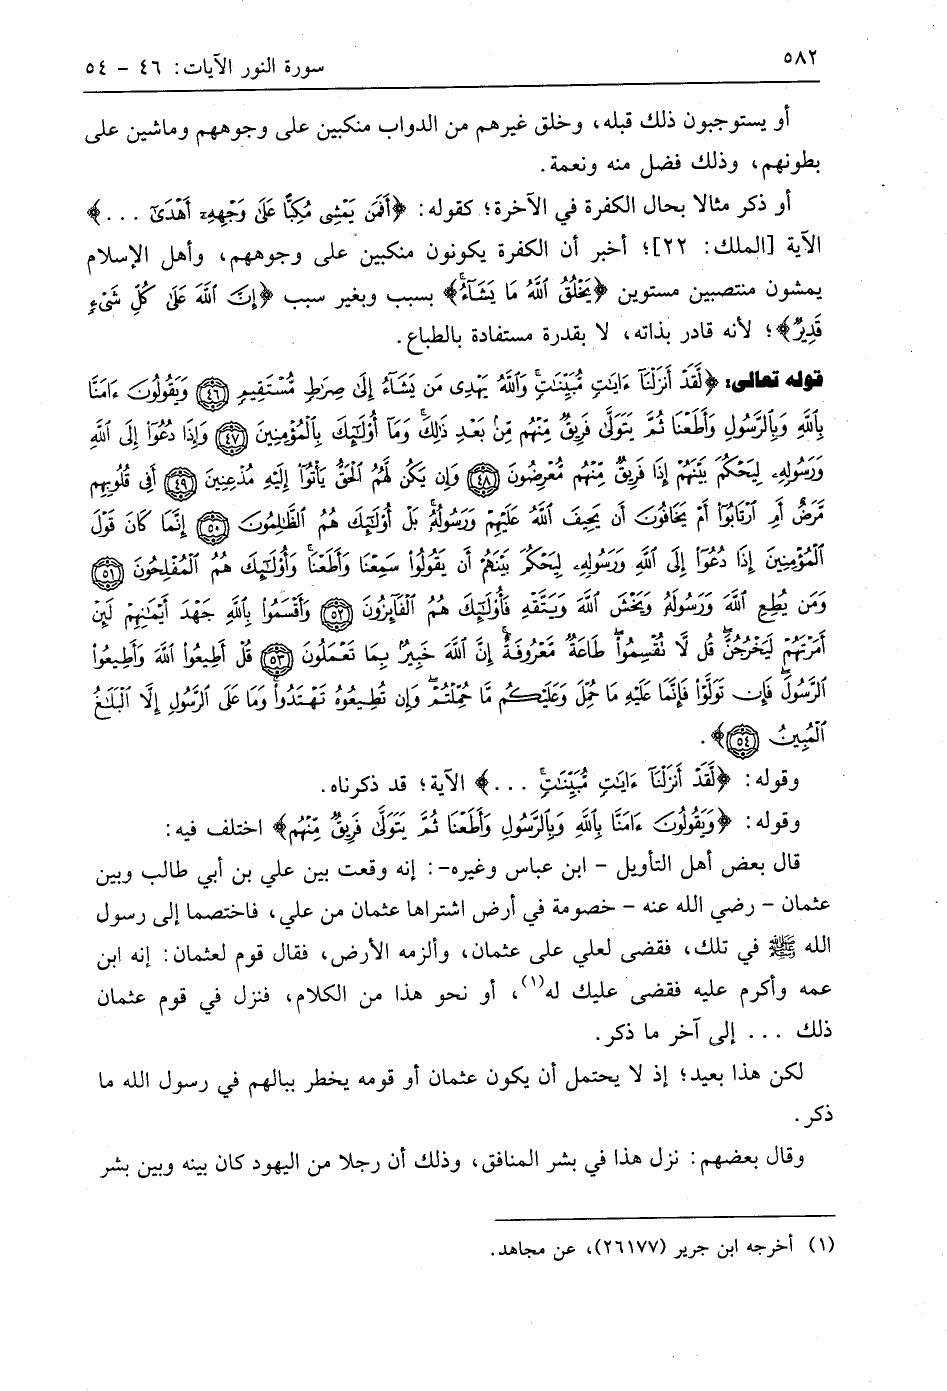 ٥٨٢ سورة النور الآيات: ٤٦ - ٥٤
أو يستوجبون ذلك قبله، وخلق غيرهم من الدواب منكبين على وجوههم وماشين على
بطونهم، وذلك فضل منه ونعمة.
أو ذكر مثالا بحال الكفرة في الآخرة؛ كقوله: ﴿أَفَمَن يَمْشِى مُكِبًّا عَلَىٰ وَجْهِهِۦٓ أَهْدَىٰٓ ...﴾
الآية [الملك: ٢٢]؛ أخبر أن الكفرة يكونون منكبين على وجوههم، وأهل الإسلام
يمشون منتصبين مستوين ﴿يَخْلُقُ ٱللَّهُ مَا يَشَآءُ﴾ بسبب وبغير سبب ﴿إِنَّ ٱللَّهَ عَلَىٰ كُلِّ شَىْءٍ
قَدِيرٌ﴾؛ لأنه قادر بذاته، لا بقدرة مستفادة بالطباع.
قوله تعالى: ﴿لَّقَدْ أَنزَلْنَآ ءَايَٰتٍ مُّبَيِّنَٰتٍ ۚ وَٱللَّهُ يَهْدِى مَن يَشَآءُ إِلَىٰ صِرَٰطٍ مُّسْتَقِيمٍ ٤٦ وَيَقُولُونَ ءَامَنَّا
بِٱللَّهِ وَبِٱلرَّسُولِ وَأَطَعْنَا ثُمَّ يَتَوَلَّىٰ فَرِيقٌ مِّنْهُم مِّنۢ بَعْدِ ذَٰلِكَ ۚ وَمَآ أُو۟لَٰٓئِكَ بِٱلْمُؤْمِنِينَ ٤٧ وَإِذَا دُعُوٓا۟ إِلَى ٱللَّهِ
وَرَسُولِهِۦ لِيَحْكُمَ بَيْنَهُمْ إِذَا فَرِيقٌ مِّنْهُم مُّعْرِضُونَ ٤٨ وَإِن يَكُن لَّهُمُ ٱلْحَقُّ يَأْتُوٓا۟ إِلَيْهِ مُذْعِنِينَ ٤٩ أَفِى قُلُوبِهِم
مَّرَضٌ أَمِ ٱرْتَابُوٓا۟ أَمْ يَخَافُونَ أَن يَحِيفَ ٱللَّهُ عَلَيْهِمْ وَرَسُولُهُۥ ۚ بَلْ أُو۟لَٰٓئِكَ هُمُ ٱلظَّٰلِمُونَ ٥٠ إِنَّمَا كَانَ قَوْلَ
ٱلْمُؤْمِنِينَ إِذَا دُعُوٓا۟ إِلَى ٱللَّهِ وَرَسُولِهِۦ لِيَحْكُمَ بَيْنَهُمْ أَن يَقُولُوا۟ سَمِعْنَا وَأَطَعْنَا ۚ وَأُو۟لَٰٓئِكَ هُمُ ٱلْمُفْلِحُونَ ٥١
وَمَن يُطِعِ ٱللَّهَ وَرَسُولَهُۥ وَيَخْشَ ٱللَّهَ وَيَتَّقْهِ فَأُو۟لَٰٓئِكَ هُمُ ٱلْفَآئِزُونَ ٥٢ وَأَقْسَمُوا۟ بِٱللَّهِ جَهْدَ أَيْمَٰنِهِمْ لَئِنْ
أَمَرْتَهُمْ لَيَخْرُجُنَّ ۖ قُل لَّا تُقْسِمُوا۟ ۖ طَاعَةٌ مَّعْرُوفَةٌ ۚ إِنَّ ٱللَّهَ خَبِيرٌۢ بِمَا تَعْمَلُونَ ٥٣ قُلْ أَطِيعُوا۟ ٱللَّهَ وَأَطِيعُوا۟
ٱلرَّسُولَ ۖ فَإِن تَوَلَّوْا۟ فَإِنَّمَا عَلَيْهِ مَا حُمِّلَ وَعَلَيْكُم مَّا حُمِّلْتُمْ ۖ وَإِن تُطِيعُوهُ تَهْتَدُوا۟ ۚ وَمَا عَلَى ٱلرَّسُولِ إِلَّا ٱلْبَلَٰغُ
ٱلْمُبِينُ ٥٤﴾.
وقوله: ﴿لَّقَدْ أَنزَلْنَآ ءَايَٰتٍ مُّبَيِّنَٰتٍ ۚ ...﴾ الآية؛ قد ذكرناه.
وقوله: ﴿وَيَقُولُونَ ءَامَنَّا بِٱللَّهِ وَبِٱلرَّسُولِ وَأَطَعْنَا ثُمَّ يَتَوَلَّىٰ فَرِيقٌ مِّنْهُم﴾ اختلف فيه:
قال بعض أهل التأويل - ابن عباس وغيره-: إنه وقعت بين علي بن أبي طالب وبين
عثمان - رضي الله عنه - خصومة في أرض اشتراها عثمان من علي، فاختصما إلى رسول
الله ﷺ في تلك، فقضى لعلي على عثمان، وألزمه الأرض، فقال قوم لعثمان: إنه ابن
عمه وأكرم عليه فقضى عليك له(١)، أو نحو هذا من الكلام، فنزل في قوم عثمان
ذلك ... إلى آخر ما ذكر.
لكن هذا بعيد؛ إذ لا يحتمل أن يكون عثمان أو قومه يخطر ببالهم في رسول الله ما
ذكر.
وقال بعضهم: نزل هذا في بشر المنافق، وذلك أن رجلا من اليهود كان بينه وبين بشر
(١) أخرجه ابن جرير (٢٦١٧٧)، عن مجاهد.